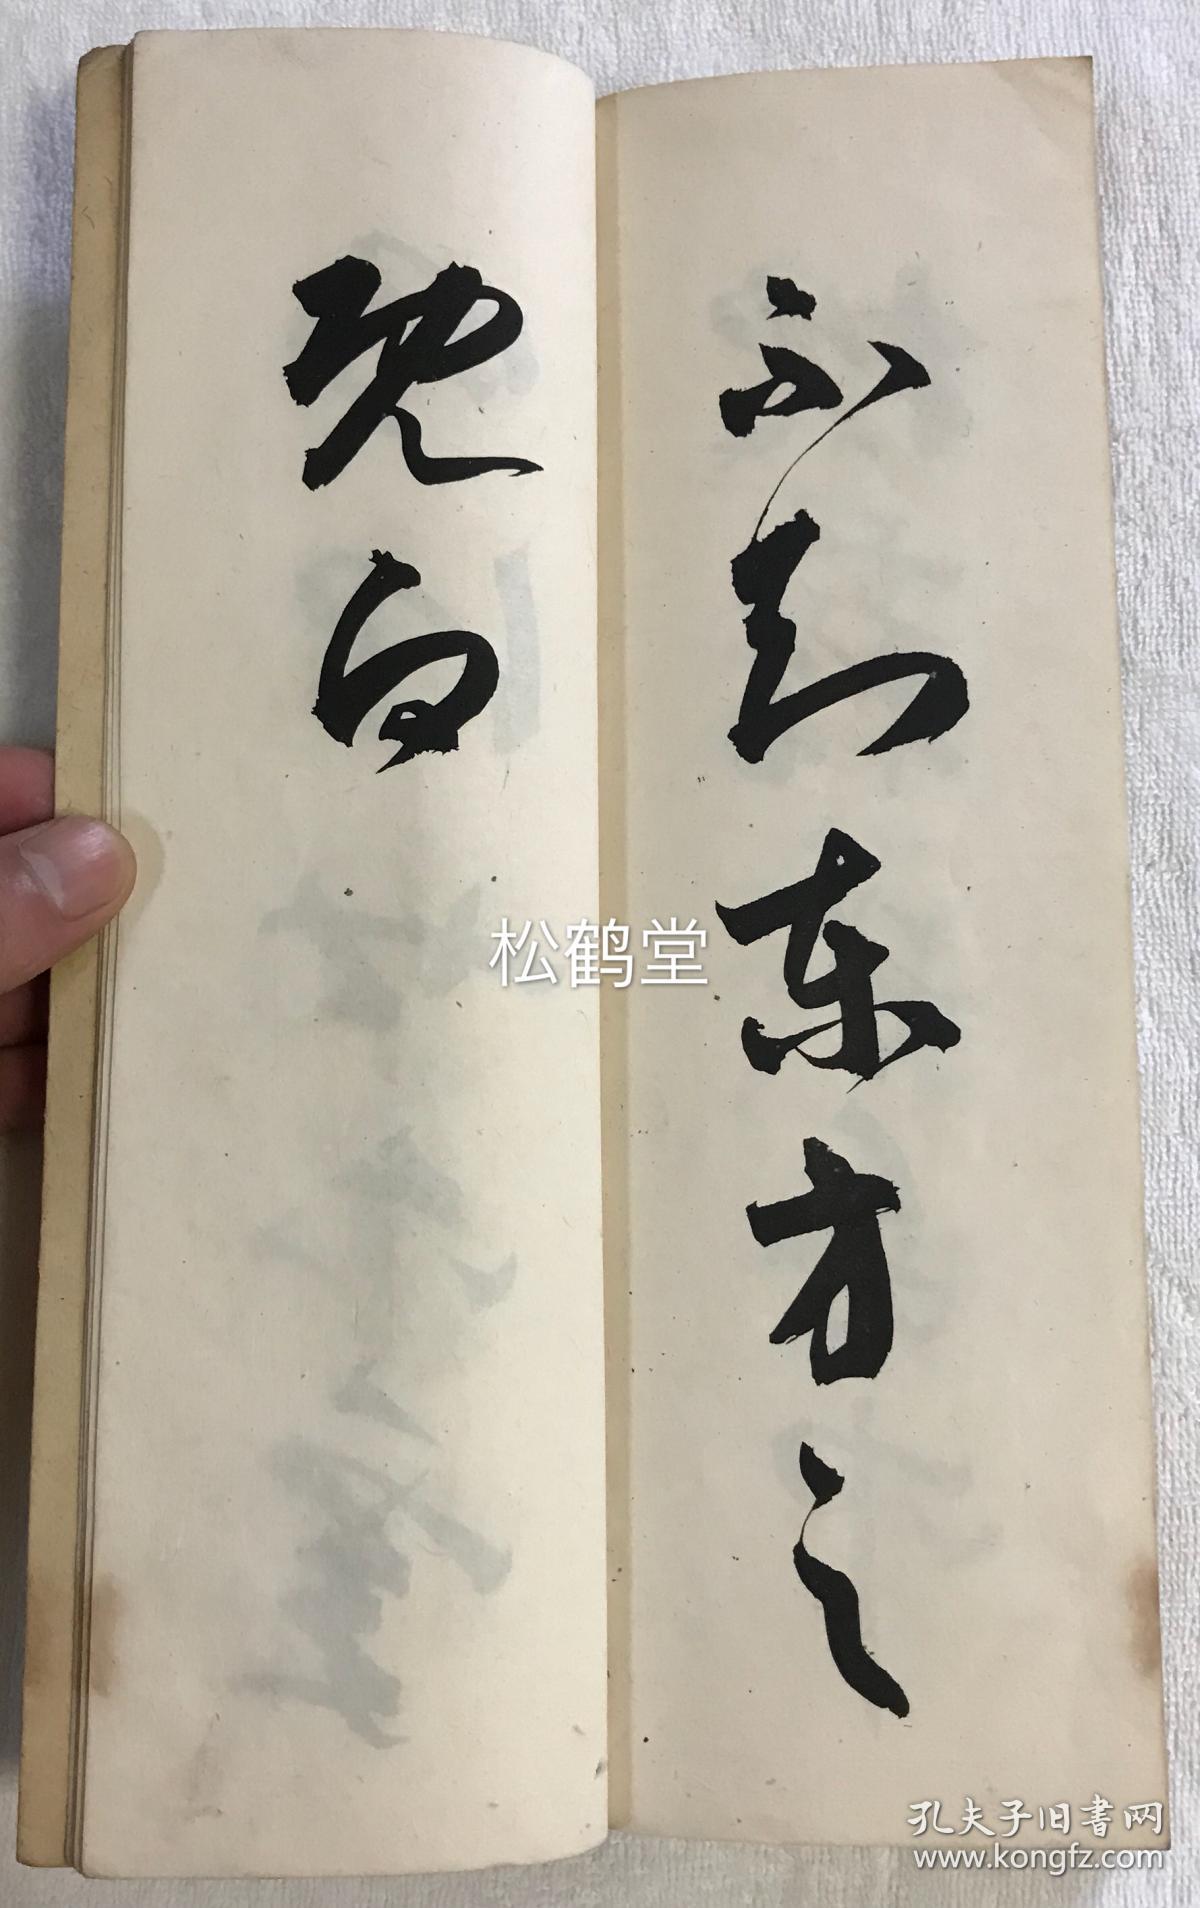 不知东方之
既白
松鹤堂
孔夫子旧書网
www.kongfz.com